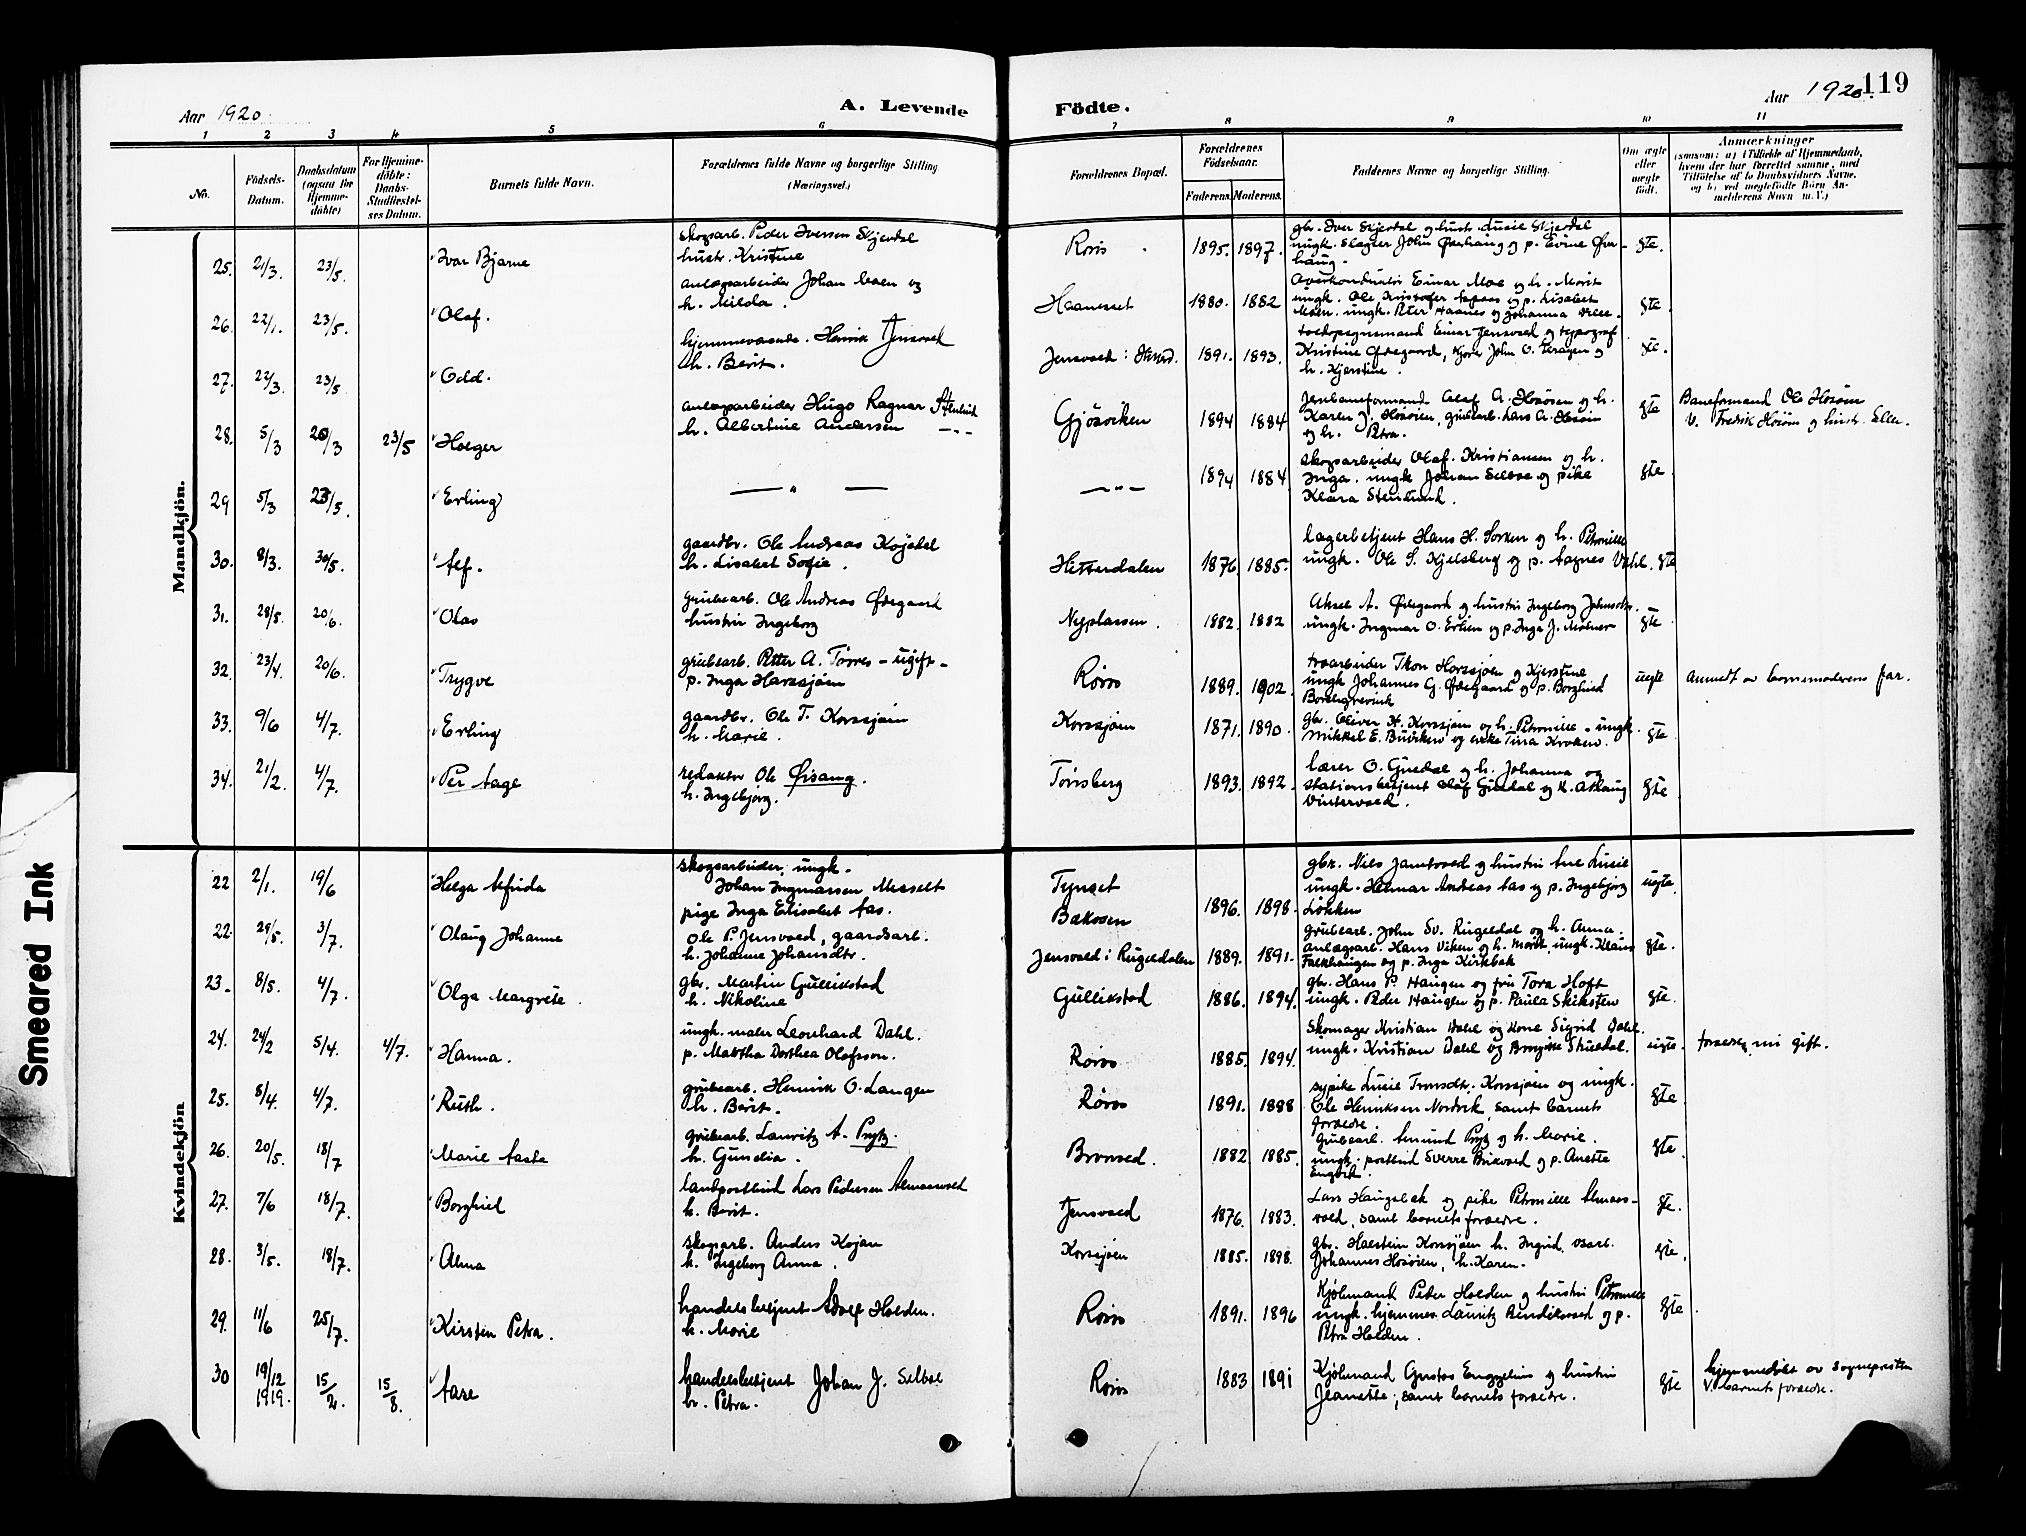 Smeared Ink
Aar 1920 A. Levende Födte. Aar 1920. 119
1 2 3 4 5 6 7 8 9 10 11
No. Födsels-Datum. Daabsdatum (ogsaa for Hjemmedöbte) For Hjemmedöbte: Daabs-Stadfæstelses Datum. Barnets fulde Navn. Forældrenes fulde Navne og borgerlige Stilling (Næringsvei.) Forældrenes Bopæl. Forældrenes Födselsaar. Faderens. Moderens. Faddernes Navne og borgerlig Stilling. Om ægte eller uægte födt. Anmærkninger (saasom: a) i Tilfælde af Hjemmedaab, hvem der har forrettet samme, med Tilföielse af to Daabsvidners Navne, og b) ved uægtefödte Börn Anmelderens Navn m. V.)
Mandkjön.
25. 21/3. 23/5. Ivar Bjarne skogsarb. Peder Iversen Skjevdal hustr. Kristine Röros 1895. 1897. gbr. Iver Skjevdal og hustr. Lucie Skjevdal ungk. John Överhaug og p. Evine Överhaug. gte.
26. 22/1. 23/5. Olaf. anlægsarbeider Johan Moen og h. Milda. 1880. 1882 Einar Moe og h. Marit ungk. Ole og p. Lisabet Moen. ungk. Peter Haanes og Johanna gte.
27. 22/3. 23/5 Odd. hjemmeværende. Henrik Jensvold h. Berit. Jensvold 1891. 1893. Einar Jensvold og Kristine Ödegaard, John O. og h. Kjerstine. gte.
28. 5/3 20/3 23/5 Holger anlægsarbeider Hugo Ragnar Stenlund h. Albertine Andersen —"— Gjösviken 1894 1884 Jernbaneformand Olaf A. Hosöien og h. Karen J. Hosöien, grubearb. Lars A. Hosöien og h. Petra. gte Baneformand Ole v. Fredrik og hustr. Ellen.
29 5/3 23/5. Erling — " — —"— 1894 1884 skogsarbeider Olaf Kristiansen og h. Inga. ungk Johan Selboe og pike Klara Stenlund. gte
30. 8/3. 30/5. Alf. gaardbr. Ole Andreas Kojedal h. Lisabet Sofie. Hitterdalen 1876. 1885. lagerbetjent Hans H. Sorken og h. Petronille ungk. Ole S. Kjelsberg og p. Agnes gte
31. 28/5. 20/6. Olav grubearb. Ole Andreas Ödegaard hustru Ingeborg Nyplassen. 1882. 1882 Aksel A. Ödegaard og hustru Ingeborg Johnsdtr. ungk. Ingmar O. Erlien og p. Inga J. gte
32. 23/4. 20/6. Trygve grubearb. Petter A. Törres — ugift — p. Inga Harsjöen Röros 1889. 1902. Horsjöen og Kjerstine ungk Johannes G. Ödegaard og p. Borghild Borchgrevink uegte anmeldt av barnemoderens far.
33. 9/6 4/7. Erling gaardbr. Ole T. Korssjöen h. Marie. Korssjöen 1871. 1890. gbr. Oliver H. Korssjöen og h. Petronille. ungk. Mikkel E. Buviken og enke Tina Kroken. gte.
34. 21/2. 4/7. Per Aage redaktör Ole Öisang. h. Ingebjörg. Tönsberg 1893. 1892. lærer O. Guldal og h. Johanna og stationsbetjent Olaf Guldal og h. Aslaug Vintervold. gte.
Kvindekjön
22 2/1. 19/6 Helga Alfrida skogsarbeider, ungk. Johan Ingmarsen Messelt pige Inga Elisabet Aas. Tynset Bakosen 1896. 1898. gbr. Nils Jamtvold og hustru Ane Lucie ungk. Helmar Andreas Aas og p. Ingebjörg Lökken uegte.
22 29/5. 3/7. Olaug Johanne Ole P. Jensvold, gaardsarb. h. Johanne Johansdtr. Jensvold i Rugeldalen 1889. 1891. grubearb. John Sv. Rugeldal og h. Anna. anlægsarb. Hans Viken og h. Marit, ungk. Klaus Falkhaugen og p. Inga Kirkbak gte.
23. 8/5. 4/7. Olga Margrete. gbr. Martin Gullikstad h. Nikoline Gullikstad 1886. 1894. gbr. Hans P. Haugen og fru Tora Hoff ungk. Peder Haugen og p. Paula gte.
24. 24/2 5/4. 4/7. Hanna. ungk. maler Leonhard Dahl. p. Martha Dorthea Olafsson. Röros 1885. 1894. Skomager Kristian Dahl og Kone Sigrid Dahl. ungk. Kristian Dahl og uegte. forældr. nu gift.
25. 5/4. 4/7. Ruth. grubearb. Henrik O. Langen h. Berit. Röros 1891. 1888 sypike Lucie Tronsdtr. Korssjöen og ungk. Ole Henriksen Nordvik, samt barnets forældre. gte.
26. 20/5. 18/7 Marie Aasta grubearb. Lauritz A. Prytz. h. Gundia. Bronsed. 1882 1885. grubearb. Amund Prytz og h. Marie. ungk. postbud Sverre og p. Anette Engvik. gte.
27. 7/6 18/7. Borghild landpostbud Lars Pedersen Almaasvold h. Berit. Jensvold 1876. 1883. Lars Haugebak og pike Petronille Almaasvold, samt barnets forældre. gte.
28. 3/5. 18/7. Alma skogsarb. Anders Kojan h. Ingeborg Anna. Korssjöen 1885. 1898. gbr. Halstein Korssjöen h. Ingrid, Johannes Hosöien, h. Karen. gte.
29. 11/6 25/7. Kirsten Petra. handelsbetjent Adolf Holden. h. Marie Röros 1891. 1896 Kjöbmand Peter Holden og hustru Petronelle ungk. hjemmev. Lauritz Bendiksvold og p. Petra Holden. gte.
30 19/12 1919. 15/2. 15/8. Aase handelsbetjent Johan J. Selboe h. Petra. Röros 1883 1891 Kjöbmand Gustav Engzelius og hustru Jeanette; samt barnets forældre. gte hjemmedöbt av sognepresten v. barnets forældre.